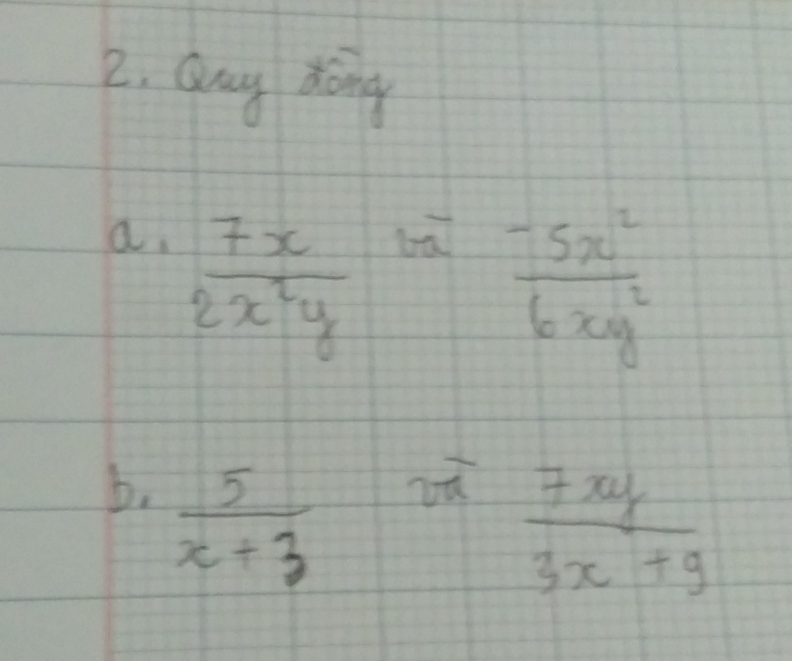 2. Quy đồng
a. \frac{7x}{2x^2y} và \frac{-5x^2}{6xy^2}
b. \frac{5}{x+3} và \frac{7xy}{3x+9}